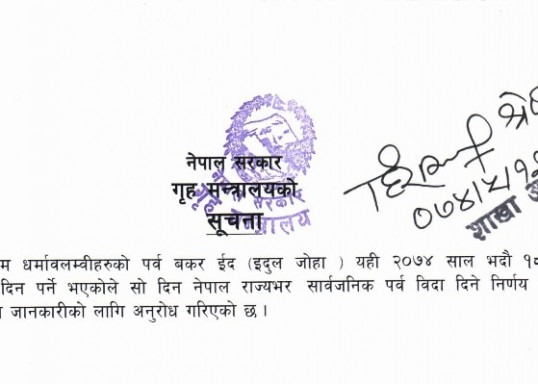 नेपाल सरकार
गृह मन्त्रालयको
सूचना
धर्मावलम्वीहरुको पर्व बकर ईद (इदुल जोहा ) यही २०७४ साल भदौ
दिन पर्ने भएकोले सो दिन नेपाल राज्यभर सार्वजनिक पर्व विदा दिने निर्णय
जानकारीको लागि अनुरोध गरिएको छ ।
शाखा